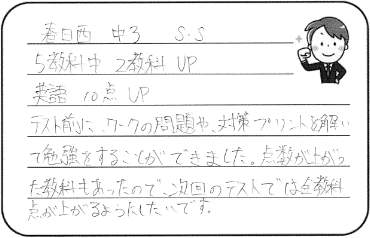 春日西 中3 S.S
5教科中 2教科 UP
英語 10点 UP
テスト前に、ワークの問題や、対策プリントを解い
て勉強をすることができました。点数が上がっ
た教科もあったので、次回のテストでは全教科
点が上がるようにしたいです。